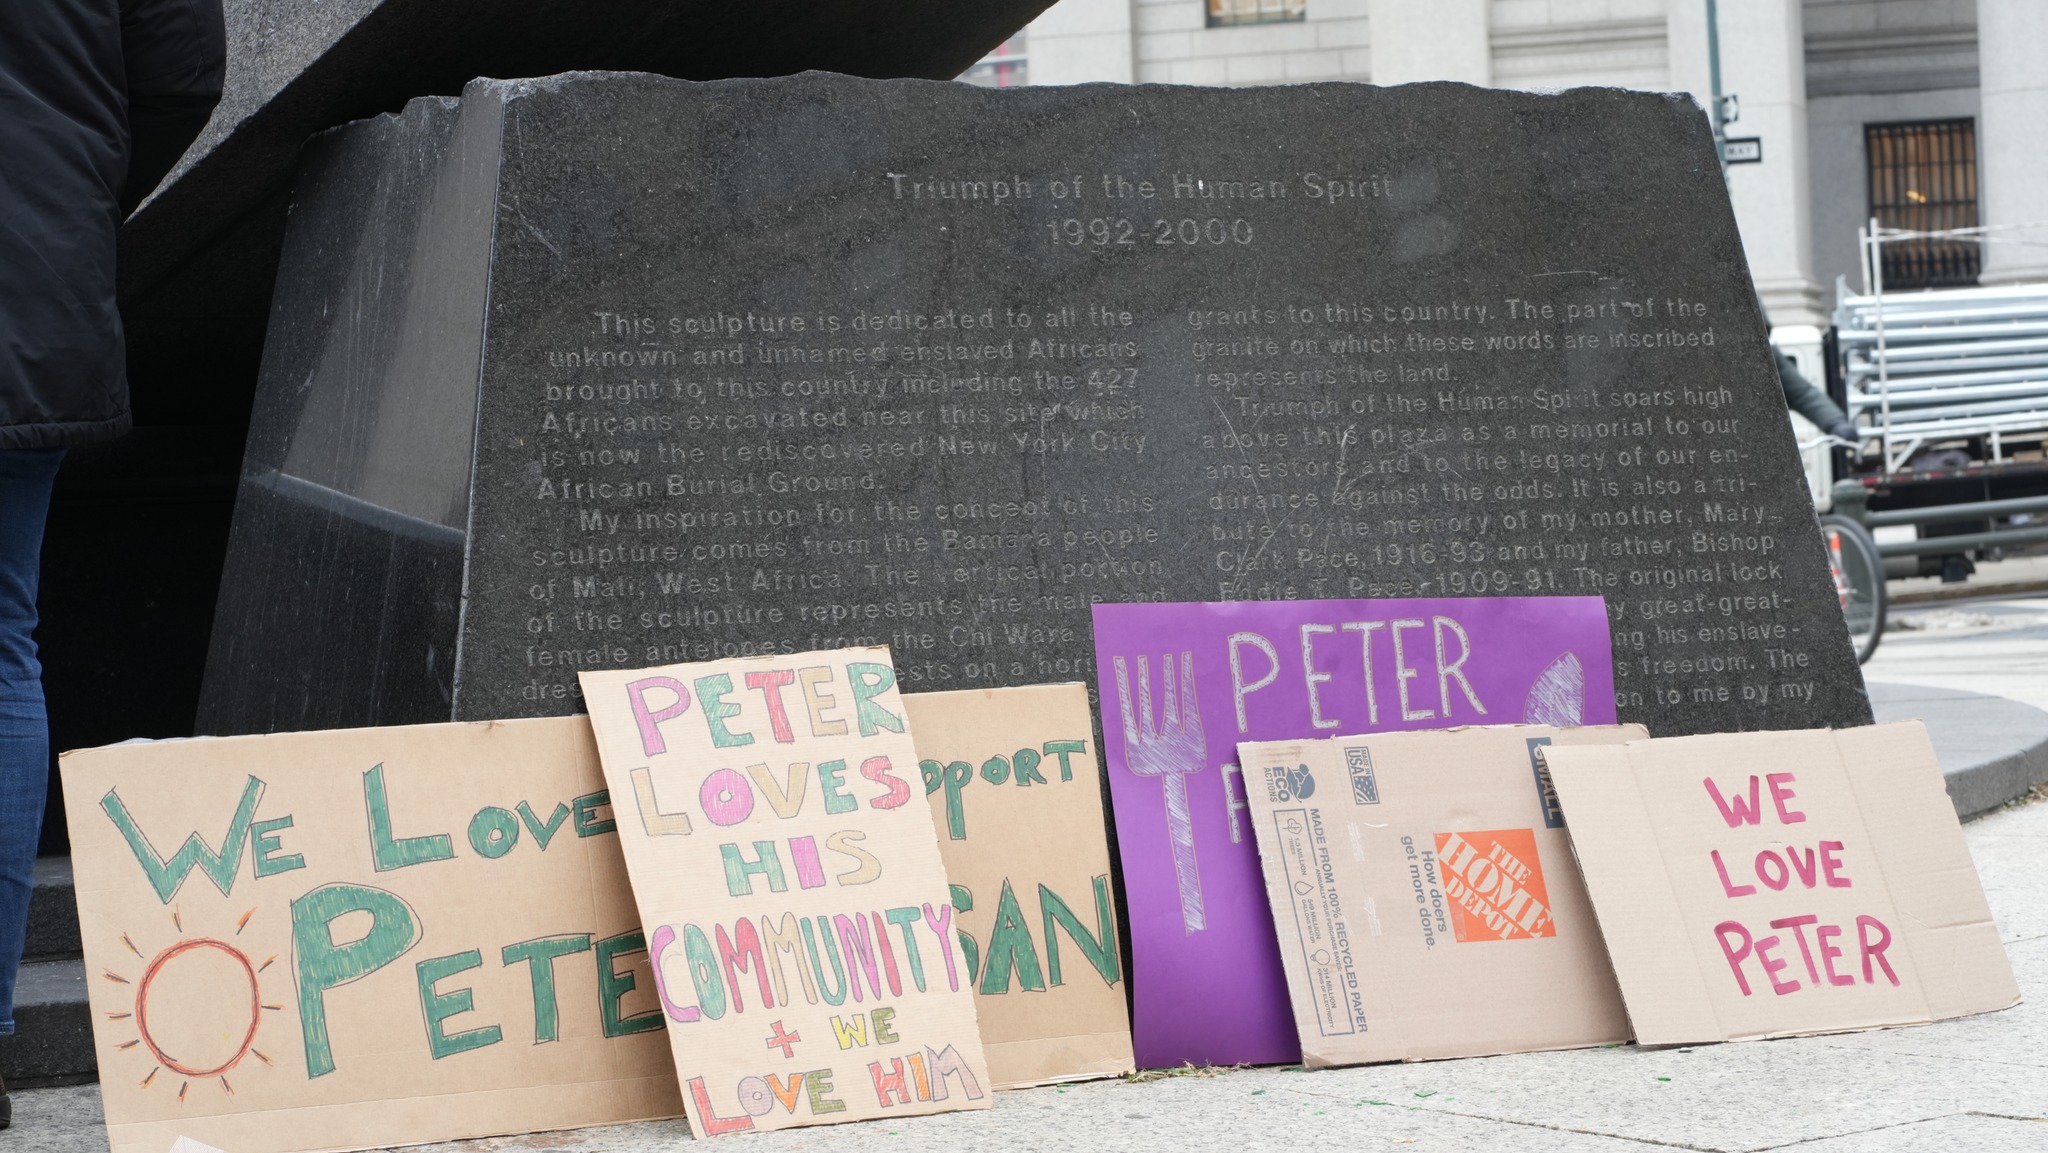 Triumph of the Human Spirit
1992-2000
This sculpture is dedicated to all the
unknown and unnamed enslaved Africans
brought to this country including the 427
Africans excavated near this site which
is now the rediscovered New York City
African Burial Ground.
My inspiration for the concept of this
sculpture comes from the Bamana people
of Mali, West Africa. The vertical portion
of the sculpture represents the male and
female antelopes from the Chi Wara
grants to this country. The part of the
granite on which these words are inscribed
represents the land.
Triumph of the Human Spirit soars high
above this plaza as a memorial to our
ancestors and to the legacy of our en-
durance against the odds. It is also a tri-
bute to the memory of my mother, Mary
Clark Pace, 1916-93 and my father, Bishop
Eddie T. Pace, 1909-91. The original lock
great-great-
his enslave-
freedom. The
to me by my
WE LOVE
PETE
PPORT
SAN
PETER
LOVES
HIS
COMMUNITY
+ WE
LOVE HIM
PETER
MADE IN
USA
ECO
ACTIONS
MADE FROM 100% RECYCLED PAPER
SMALL
How doers
get more done.
THE
HOME
DEPOT
WE
LOVE
PETER
WAY